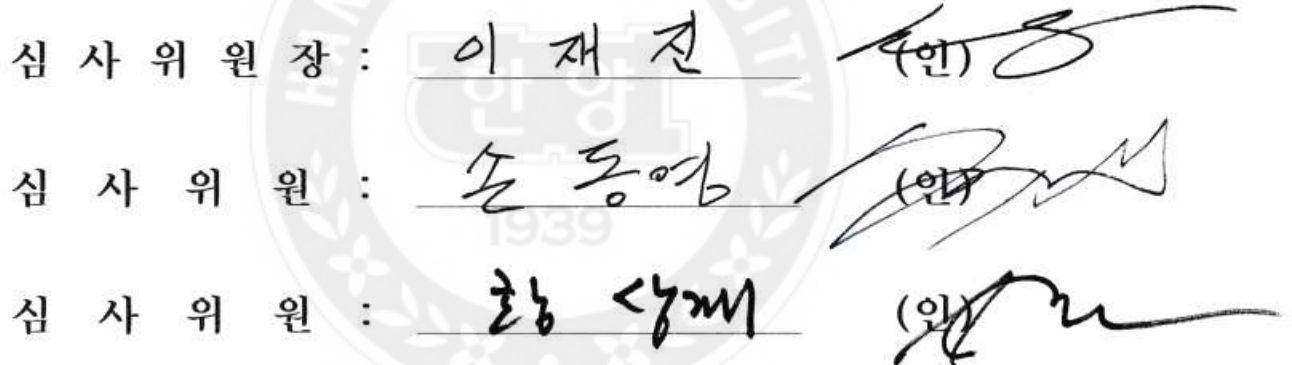 심 사 위 원 장 : 이 재 진 (인)
심 사 위 원 : 손 동 영 (인)
심 사 위 원 : 황 상재 (인)
한양
1939